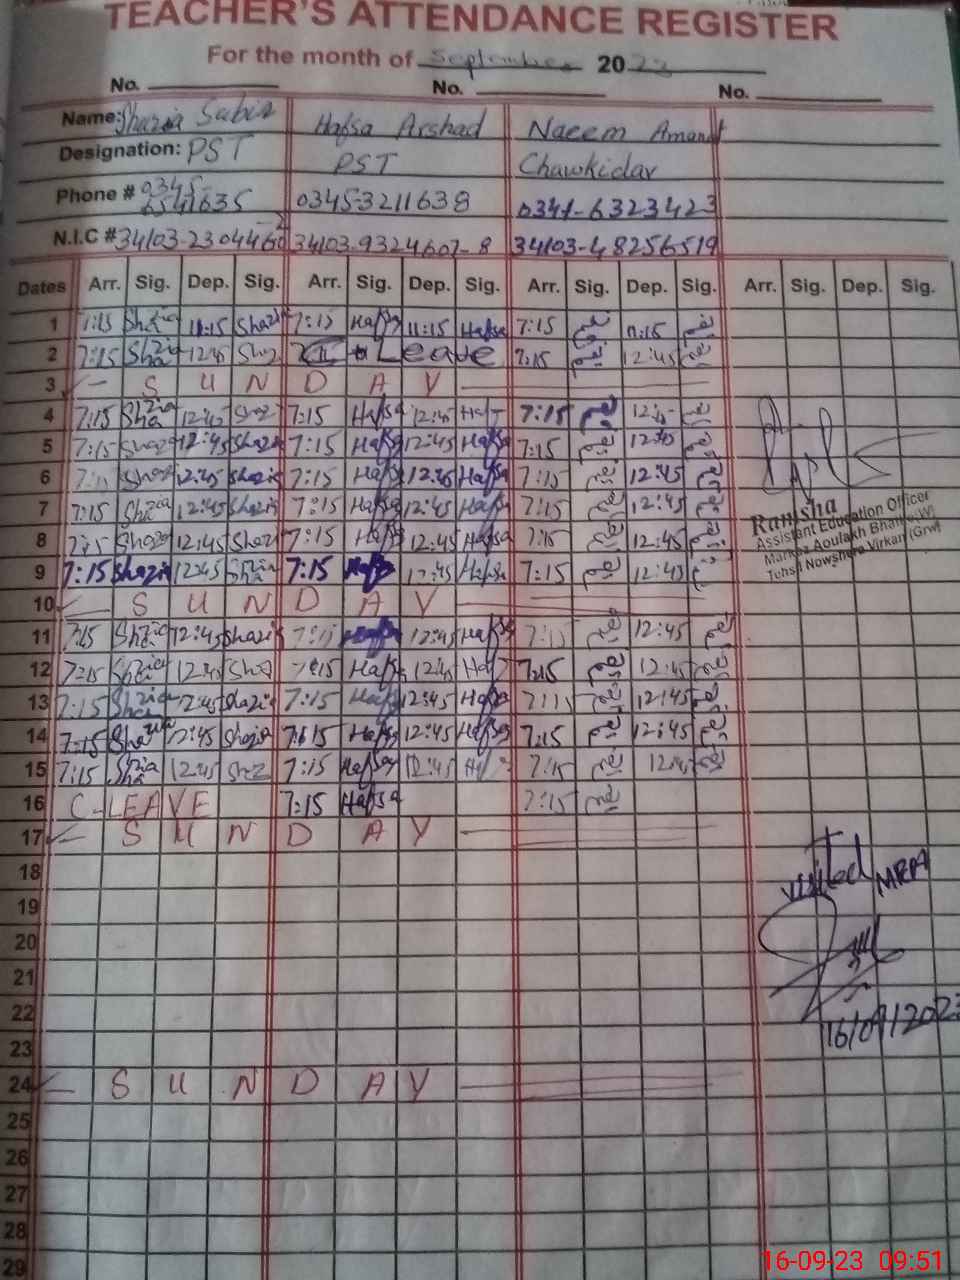 TEACHER'S ATTENDANCE REGISTER
For the month of September 2023
No. No. No.
Name: Shazia Sabir Hafsa Arshad Naeem Amanat
Designation: PST PST Chawkidar
Phone # 0345- 6541635 0345-3211638 0341-6323423
N.I.C # 34103-2304460-2 34103-9324607-8 34103-48256519
Dates Arr. Sig. Dep. Sig. Arr. Sig. Dep. Sig. Arr. Sig. Dep. Sig. Arr. Sig. Dep. Sig.
1 7:15 Shazia 11:15 Shazia 7:15 Hafsa 11:15 Hafsa 7:15 11:15
2 7:15 Shazia 12:45 Shaz Leave 7:15 12:45
3 S U N D A Y
4 7:15 Shazia 12:45 Shaz 7:15 Hafsa 12:45 Haf 7:15 12:45
5 7:15 Shaz 12:45 Shazia 7:15 Hafsa 12:45 Hafsa 7:15 12:45
6 7:15 Shaz 12:45 Shazia 7:15 Hafsa 12:45 Hafsa 7:15 12:45
7 7:15 Shazia 12:45 Shazia 7:15 Hafsa 12:45 Hafsa 7:15 12:45
8 7:15 Shaza 12:45 Shazi 7:15 Hafsa 12:45 Hafsa 7:15 12:45
9 7:15 Shazia 12:45 Shazia 7:15 Hafsa 12:45 Hafsa 7:15 12:45
10 S U N D A Y
11 7:15 Shazia 12:45 Shazia 7:15 Hafsa 12:45 Hafsa 7:15 12:45
12 7:15 Shazia 12:45 Sha 7:15 Hafsa 12:45 Haf 7:15 12:45
13 7:15 Shazia 12:45 Shazia 7:15 Hafsa 12:45 Hafsa 7:15 12:45
14 7:15 Shazia 12:45 Shazia 7:15 Hafsa 12:45 Hafsa 7:15 12:45
15 7:15 Shazia 12:45 Shaz 7:15 Hafsa 12:45 7:15 12:45
16 C-LEAVE 7:15 Hafsa 7:15
17 S U N D A Y
18
19
20
21
22
23
24 S U N D A Y
25
26
27
28
29
Ramsha
Assistant Education Officer
Markaz Aoulakh Bhaike(W)
Tehsil Nowshera Virkan (Grw)
visited MEA
16/09/2023
16-09-23 09:51